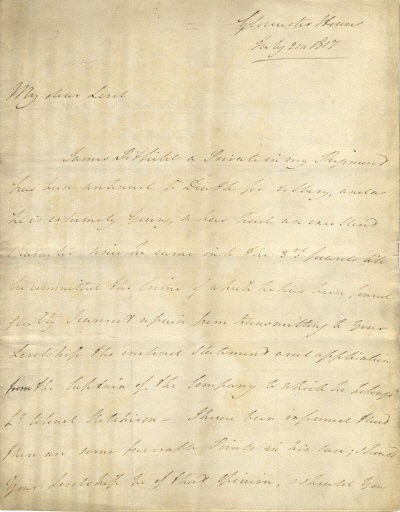 Gloucester House
July 21st 1817
My dear Lord
James a Private in my Regiment
has been sentenced to Death for robbery, and as
he is extremely young, & has had an excellent
Character since he came into the 3d Guards till
he committed the Crime of which he has been found
guilty I cannot refrain from transmitting to Your
Lordship the enclosed Statement and application
from the Captain of the Company to which he belongs
Lt Colonel I have been informed that
there are some favorable points in his case; should
Your Lordship be of that Opinion, & should You